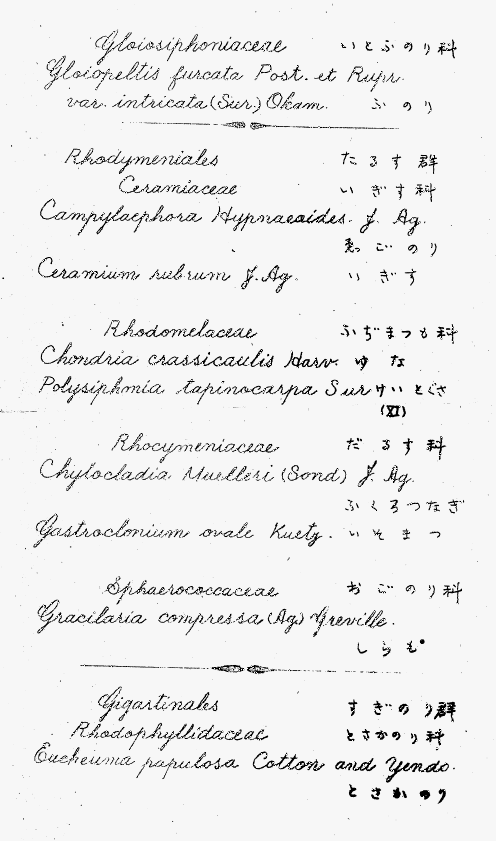 Gloiosiphoniaceae いとふのり科
Gloiopeltis furcata Post. et Rupr.
var. intricata (Sur.) Okam. ふのり
Rhodymeniales だるす群
Ceramiaceae いぎす科
Campylaephora Hypnaeaides. J. Ag.
ゑごのり
Ceramium rubrum J. Ag. いぎす
Rhodomelaceae ふぢまつも科
Chondria crassicaulis Harv. ゆな
Polysiphmia tapinocarpa Sur けいとぐさ
(XI)
Rhocymeniaceae だるす科
Chylocladia Muelleri (Sond) J. Ag.
ふくろつなぎ
Gastroclonium ovale Kuetg. いそまつ
Sphaerococcaceae おごのり科
Gracilaria compressa (Ag) Greville.
しらも
Gigartinales すぎのり群
Rhodophyllidaceae とさかのり科
Eucheuma papulosa Cotton and Yendo.
とさかのり